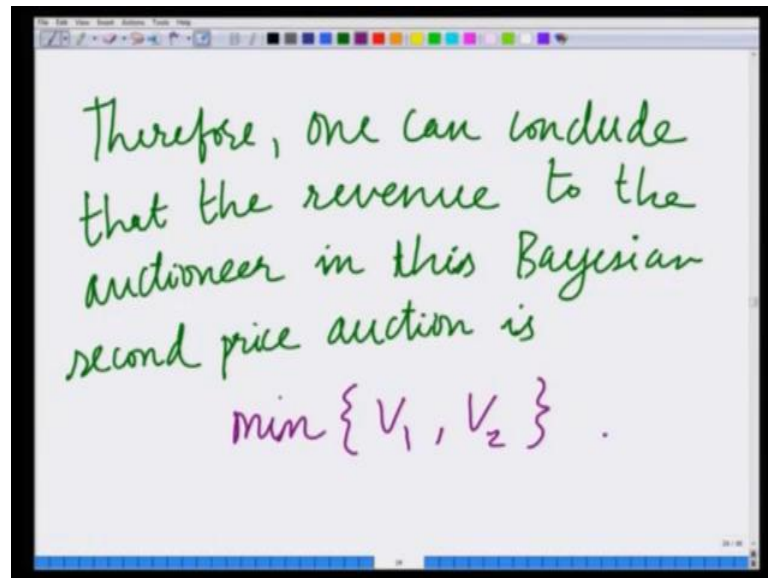 File Edit View Insert Actions Tools Help
Therefore, one can conclude
that the revenue to the
auctioneer in this Bayesian
second price auction is
min { V₁ , V₂ } .